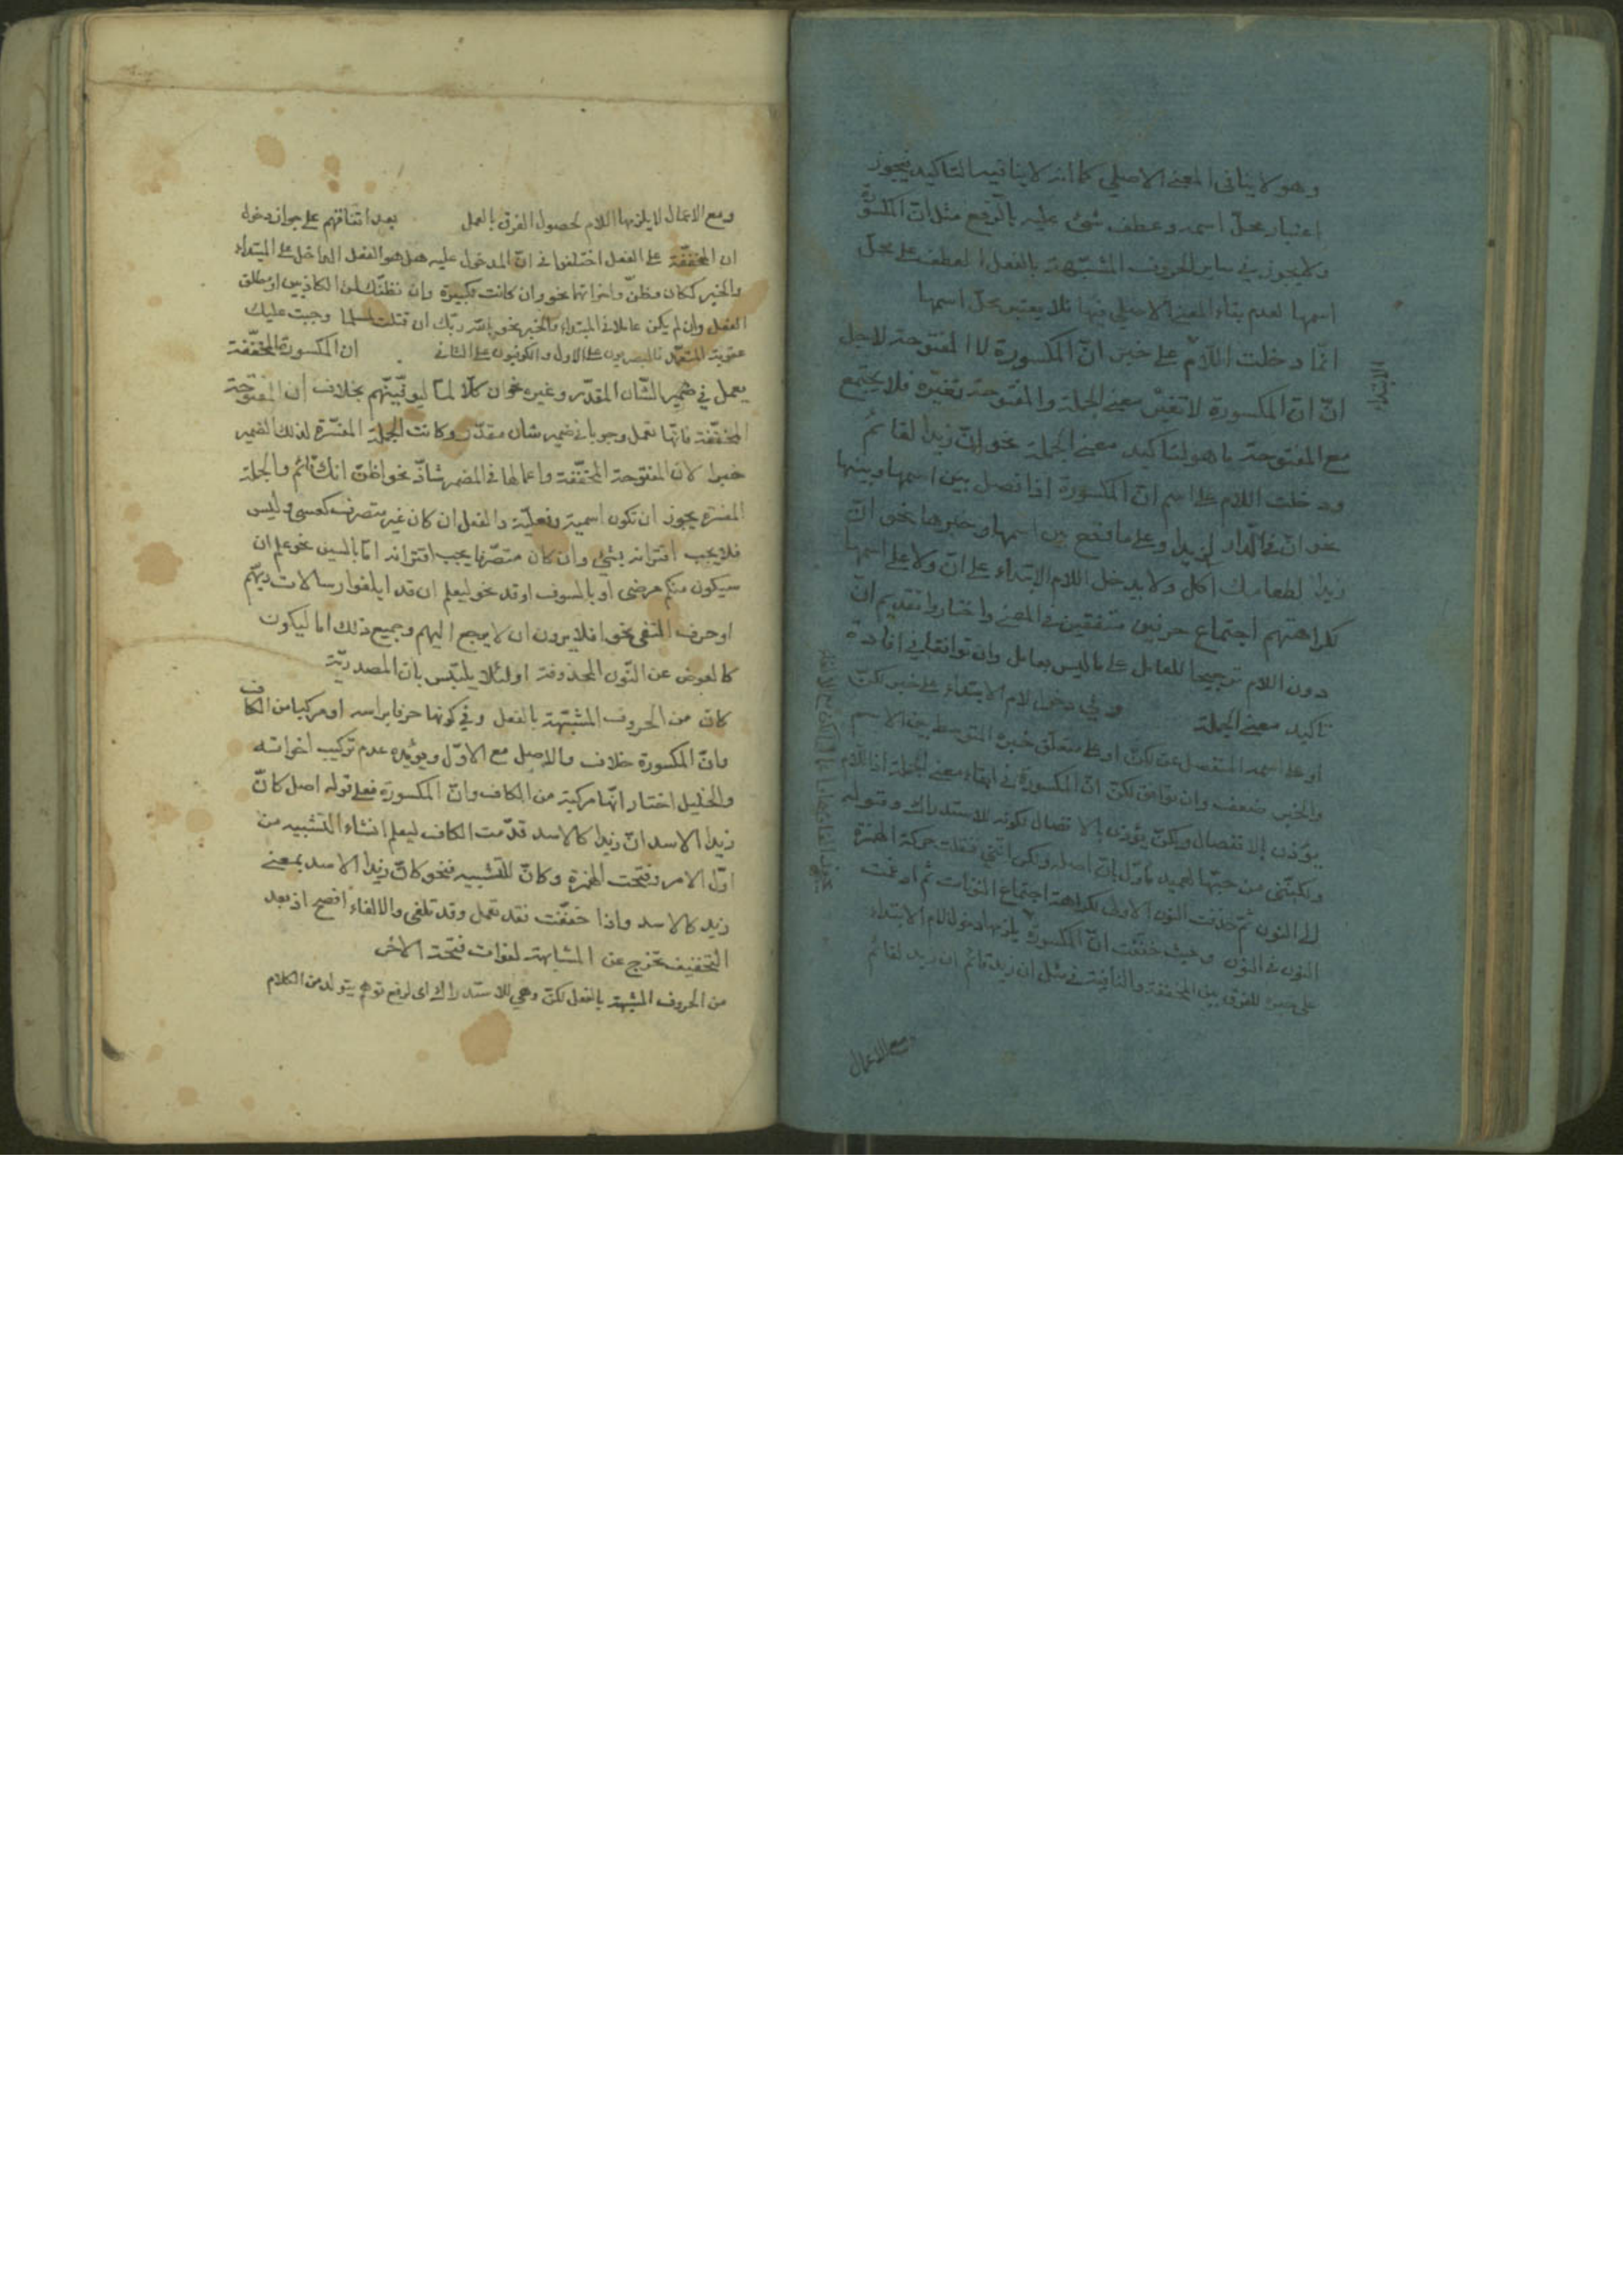 وهو لا ينافى المعنى الاصلي كما انه لا ينافيه التاكيد فيجوز
اعتبار محلّ اسمه وعطف شئ عليه بالرّفع مثل انّ المكسورة
ولا يجوز في ساير الحروف المشبّهة بالفعل العطف على محلّ
اسمها لعدم بقاء المعنى الاصلى فيها فلا يعتبر محلّ اسمها
انّما دخلت اللّام على خبر انّ المكسورة لا المفتوحة لاجل
انّ انّ المكسورة لا تغيّر معنى الجملة والمفتوحة تغيّره فلا يجتمع
مع المفتوحة ما هو لتاكيد معنى الجملة نحو انّ زيدا لقائمٌ
ودخلت اللام على اسم انّ المكسورة اذا فصل بين اسمها وبينها
نحو انّ في الدّار لزيدا وعلى ما وقع بين اسمها وخبرها نحو انّ
زيدا لطعامك آكل ولا يدخل اللام الابتداء على انّ ولا على اسمها
لكراهتهم اجتماع حرفين متفقين في المعنى واختاروا تقديم انّ
دون اللام ترجيحا للعامل على ما ليس بعامل وان توافقا في افادة
تاكيد معنى الجملة وفي دخول لام الابتداء على خبر لكنّ
او على اسمه المنفصل عن لكنّ او على متعلّق خبره المتوسط بين الاسم
والخبر ضعف وان توافق لكنّ انّ المكسورة في ابقاء معنى الجملة اذ اللام
يؤذن بالانفصال ولكنّ يؤذن بالاتصال لكونه للاستدراك وقوله
ولكنّنى من حبّها لعميد ماوّل بانّ اصله ولكن انّني فنقلت حركة الهمزة
الى النون ثم حذفت النون الاولى لكراهة اجتماع النونات ثم ادغمت
النون في النون وحيث خفّفت انّ المكسورة يلزمها دخول لام الابتداء
على خبره للفرق بين المخففة والنافية في مثل ان زيد قائم ان زيد لقائم
ومع الاعمال
ومع الاعمال لا يلزمها اللام لحصول الفرق بالعمل بعد اتفاقهم على جواز دخول
ان المخففّة على الفعل اختلفوا في انّ المدخول عليه هل هو الفعل الداخل على المبتداء
والخبر ككان وظنّ واخواتهما نحو وان كانت لكبيرة وان نظنّك لمن الكاذبين او مطلق
الفعل وان لم يكن عاملا في المبتداء والخبر نحو بالله ربّك ان قتلت لمسلما وجبت عليك
عقوبة المتعمّد فالبصريون على الاول والكوفيون على الثانى ان المكسورة المخففّة
يعمل في ضمير الشّان المقدّر وغيره نحو ان كلّا لمّا ليوفّينّهم بخلاف ان المفتوحة
المخفّفة فانّها تعمل وجوبا في ضمير شان مقدّر وكانت الجملة المفسّرة لذلك الضمير
خبرا لانّ المفتوحة المخفّفة واعمالها في المضمر شاذّ نحو اظنّ انك قائم والجملة
المفسّرة يجوز ان تكون اسمية وفعليّة والفعل ان كان غير متصرف كعسى وليس
فلا يجب اقترانه بشئ وان كان متصّرفا يجب اقترانه امّا بالسين نحو علم ان
سيكون منكم مرضى او بالسوف او قد نحو ليعلم ان قد ابلغوا رسالات ربّهم
او حرف النفى نحو افلا يرون ان لا يرجع اليهم وجميع ذلك اما ليكون
كالعوض عن النّون المحذوفة او لئلّا يلتبس بان المصدريّة
كانّ من الحروف المشبّهة بالفعل وفي كونها حرفا براسه او مركبا من الكاف
وانّ المكسورة خلاف والاصل مع الاوّل ويؤيّده عدم تركيب اخواته
والخليل اختار انّها مركبة من الكاف وانّ المكسورة فعلى قوله اصل كانّ
زيدا الاسد انّ زيدا كالاسد قدّمت الكاف ليعلم انشاء التشبيه من
اوّل الامر وفتحت الهمزة وكانّ للتشبيه فنحو كانّ زيدا الاسد بمعنى
زيد كالاسد واذا خفّفت فقد تعمل وقد تلغى والالغاء افصح اذ بعد
التخفيف تخرج عن المشابهة لفوات فتحة الاخر
من الحروف المشبهة بالفعل لكنّ وهي للاستدراك اى لرفع توهم يتولد من الكلام